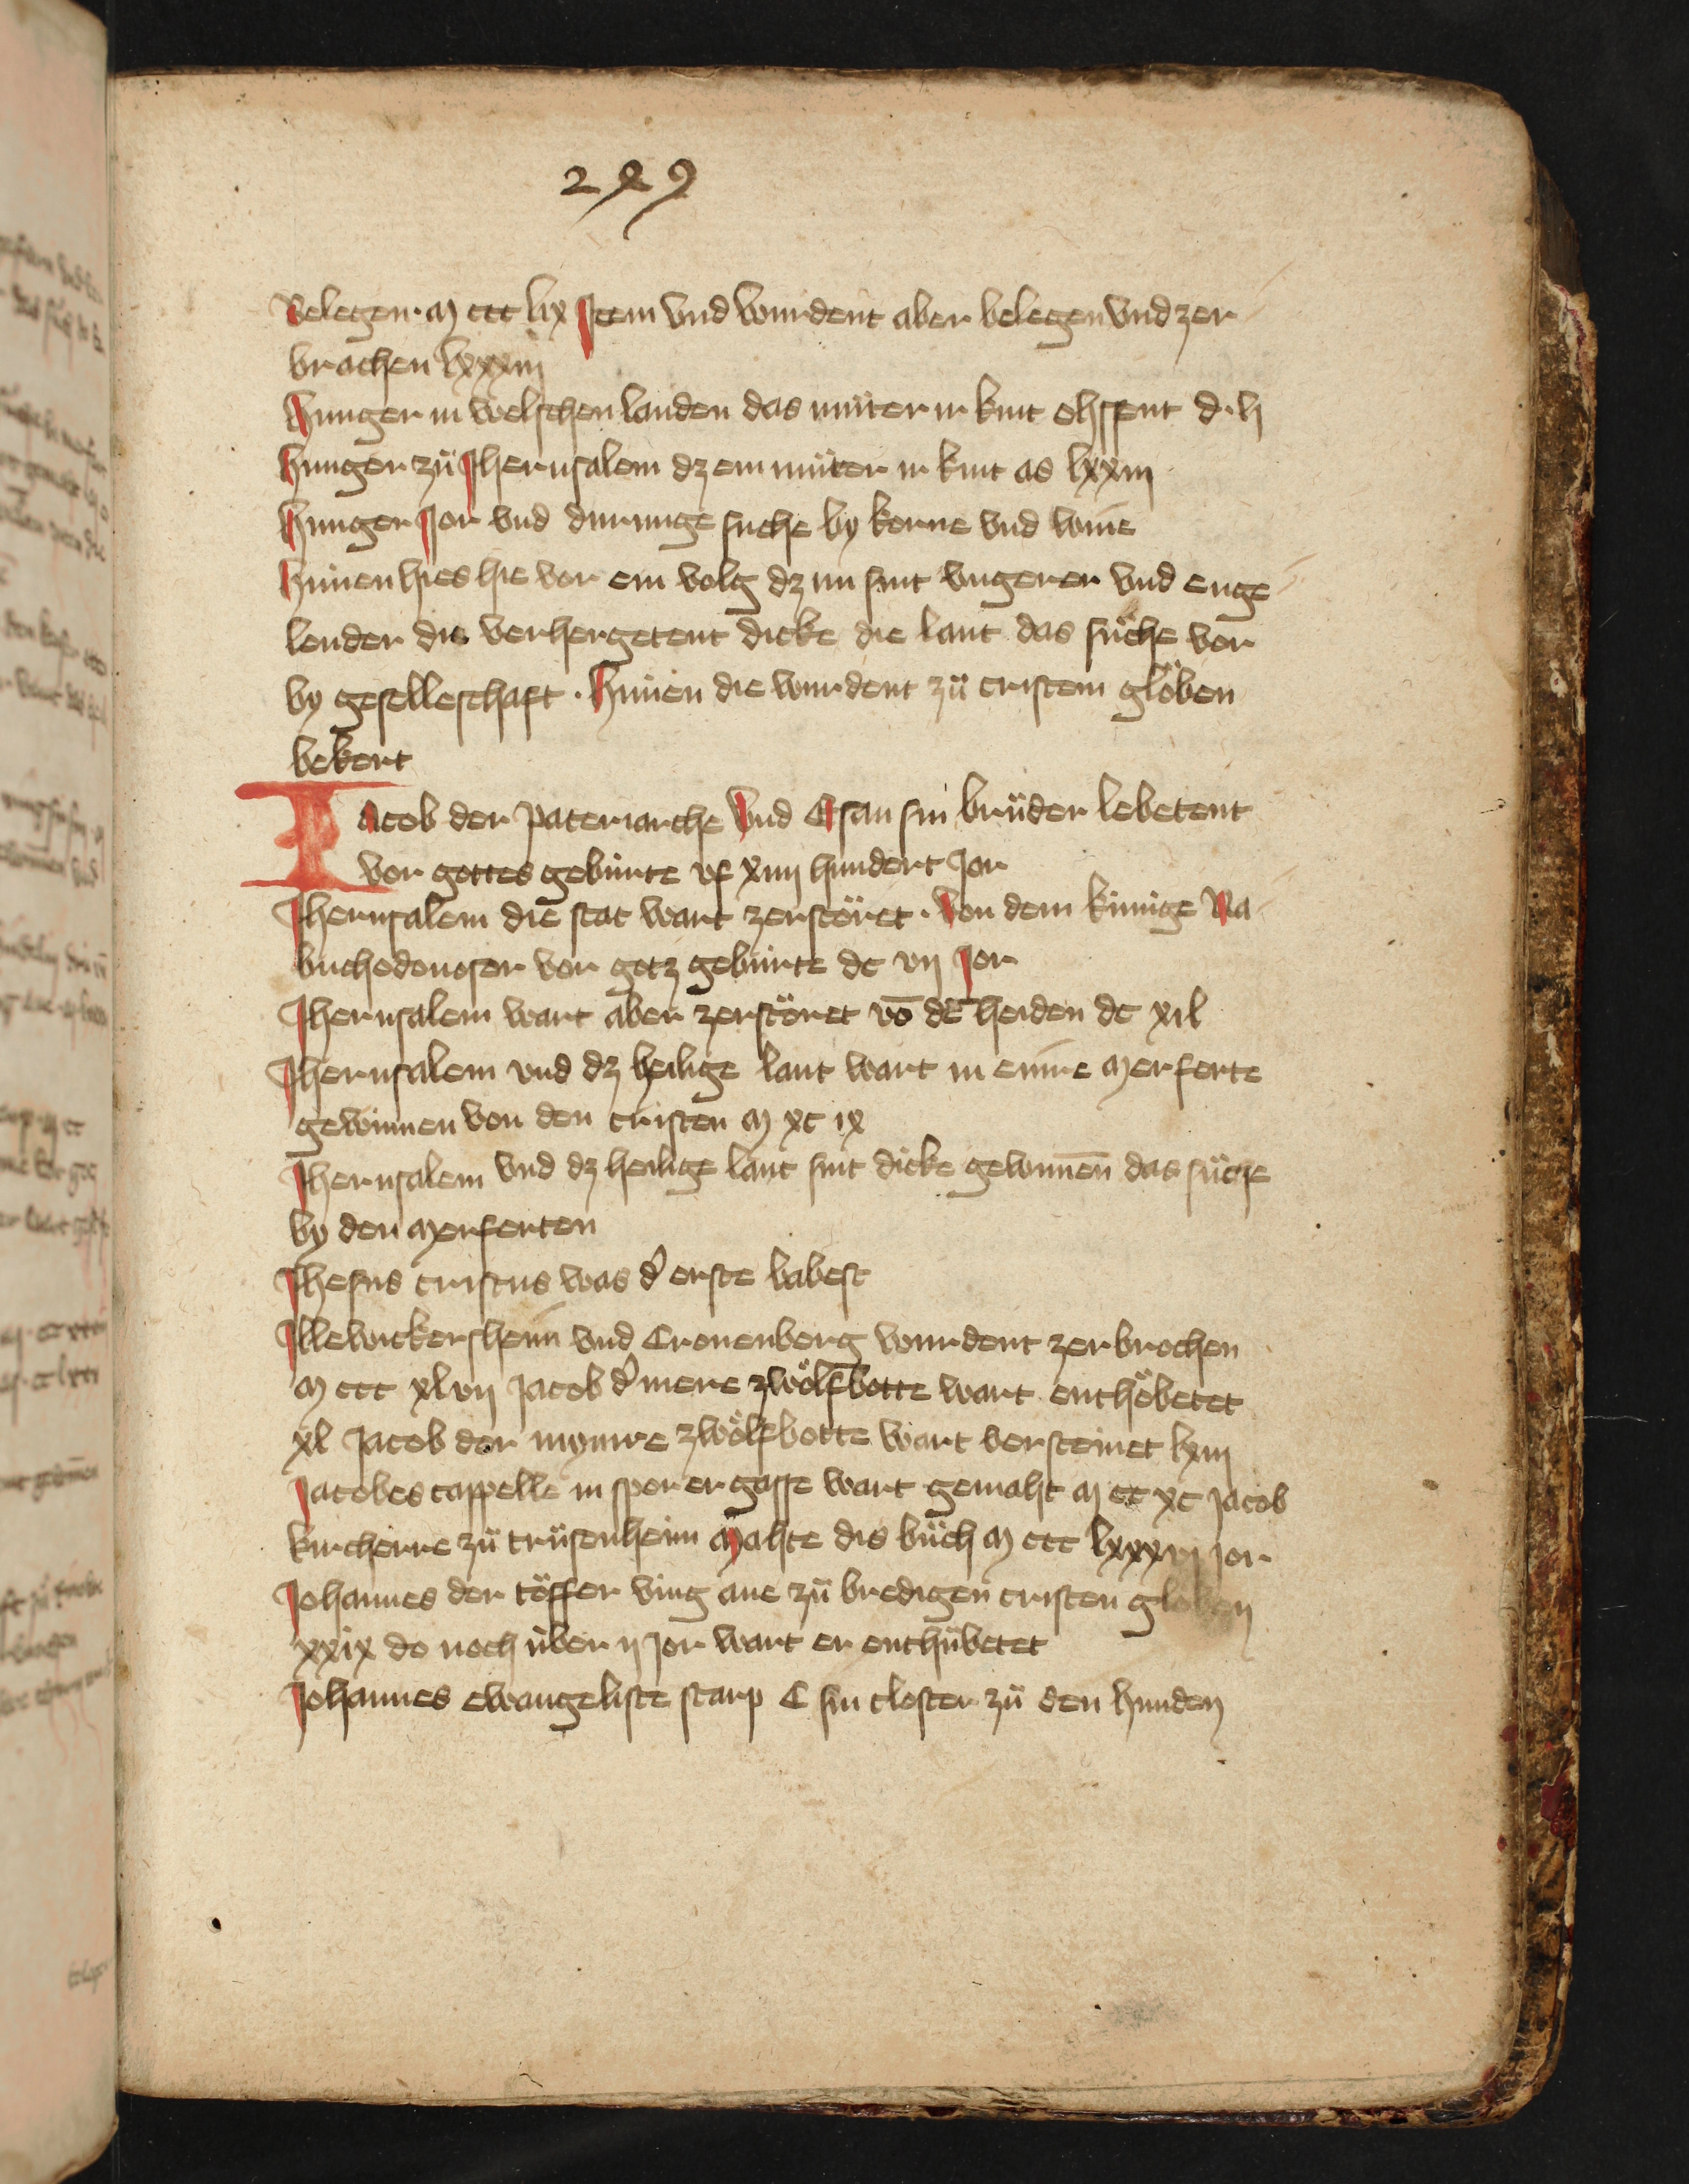 299
Belegen · M ccc lix Item vnd wurdent aber belegen vnd zer
brochen lxxxiij
Hunger in welschen landen das můter ir kint ohssent d · lj
Hunger zů Jherusalem dz ein můter ir kint as lxxiij
Hunger Jor vnd durunge suche by korne vnd wine
Hünen hies hie vor ein volg dz nu sint vngerer vnd enge
lender die verhergetent dicke die lant das sůche vor
by geselleschaft · Hünen die wurdent zů cristem glöben
bekert
Jacob der pateriarche vnd Esau sin brůder lebetent
vor gottes gebürte vf xiiij hundert Jor
Jherusalem die stat wart zerstöret · von dem künige Na
buchodonosor vor gotz gebürte dc vij Jor
Jherusalem wart aber zerstöret vō dē heiden dc xil
Jherusalem vnd dz heilige lant wart in einre merferte
gewunnen von den cristen M xc ix
Jherusalem vnd dz heilige lant sint dicke gewunnen das sůche
by den merferten
Jhesus cristus was d' erste babest
Jllewickersheim vnd Cronenberg wurdent zerbrochen
M ccc xlvij Jacob d' mere zwölfbotte wart enthöbetet
xl Jacob der mynre zwölfbotte wart versteinet lxiij
Jacobes cappelle in sporer gasse wart gemaht M cc xc Jacob
kircherre zů trůsenheim Mahte dis bůch M ccc lxxxvj Jor
Johannes der töffer ving ane zů bredigen cristen globen
xxix do noch über ij Jor wart er enthübetet
Johannes ewangeliste starp C sin closter zů den hunden